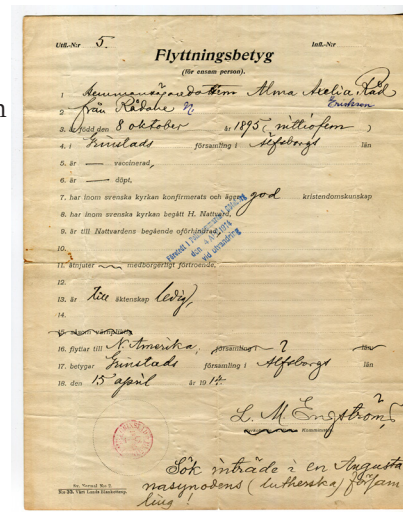 n
Utfl.-N:r 5. Infl.-N:r
Flyttningsbetyg
(för ensam person).
1 Hemmansägaredottern Alma Axelia Råd
2 från Rådane N. Erikson
3. är född den 8 oktober år 1895 (nittiofem)
4. i Grinstads församling i Älfsborgs län
5. är — vaccinerad,
6. är — döpt,
7. har inom svenska kyrkan konfirmerats och äger god kristendomskunskap
8. har inom svenska kyrkan begått H. Nattvard,
9. är till Nattvardens begående oförhindrad,
10.
11. åtnjuter medborgerligt förtroende,
12.
13. är till äktenskap ledig,
14.
15. såsom värnpliktig
16. flyttar till N. Amerika, församling i ? län
17. betygar Grinstads församling i Älfsborgs län
18. den 15 april år 1914.
L. M. Engström,
Kyrkoherde
Sök inträde i en Augusta
nasynodens (lutherska) försam
ling!
Av. Normal No 2.
No 30. Vårt Lands Blankettexp.